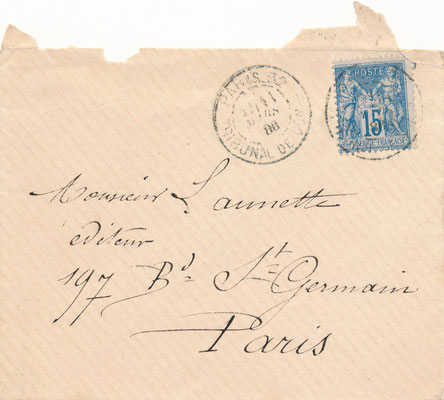 PARIS 32
MARS
86
TRIBUNAL DE COM
POSTE
15
FRANÇAISE
Monsieur Launette
editeur
197 Bd St Germain
Paris